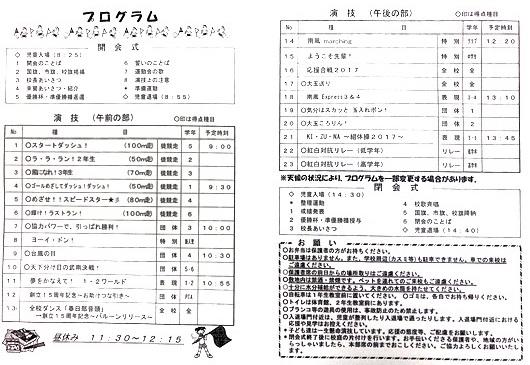 プログラム
開会式
◇ 児童入場 (8:25)
1 開会のことば
2 国旗、市旗、校旗掲揚
3 校長あいさつ
4 来賓あいさつ・紹介
5 優勝杯・準優勝楯返還
6 誓いのことば
7 運動会の歌
8 演技上の注意
* 準備運動
◇ 児童退場 (8:55)
演技 (午前の部) ○印は得点種目
No 種目 学年 予定時刻
1 ○スタートダッシュ! (100m走) 徒競走 5 9:00
2 ○ラ・ラ・ラン!2年生 (50m走) 徒競走 2
3 ○風になれ!3年生 (70m走) 徒競走 3
4 ○ゴールめざしてダッシュ!ダッシュ! (50m走) 徒競走 1 9:30
5 ○めざせ!スピードスター☆彡 (80m走) 徒競走 4
6 ○輝け!ラストラン! (100m走) 徒競走 6
7 ○協力パワーで、引っぱれ勝利! 団体 3 10:00
8 ヨーイ・ドン! 特別
9 ○台風の目 団体 4 10:30
10 ○天下分け目の武南決戦! 団体 5・6
11 夢をかなえて! 1・2ワールド 表現 1・2 10:55
12 創立15周年記念~お助けつな引き~ 団体 PTA
13 全校ダンス「春日部音頭」
~創立15周年記念~バルーンリリース~ 表現 全校
昼休み 11:30~12:15
演技 (午後の部) ○印は得点種目
種目 学年 予定時刻
14 南風 marching 特別 12:20
15 ようこそ先輩! 特別
16 応援合戦2017 全校 全
17 ○大玉送り 全校 全
18 南風 Express3&4 表現 3・4 13:10
19 ○気分はスカッと 玉入れポン! 団体 1
20 ○大玉ころりん! 団体 2
21 KI・ZU・NA ~組体操2017~ 表現 13:45
22 ○紅白対抗リレー(低学年) リレー
23 ○紅白対抗リレー(高学年) リレー
※天候の状況により、プログラムを一部変更する場合があります。
閉会式
◇ 児童入場 (14:30)
* 整理運動
1 成績発表
2 優勝杯・準優勝楯授与
3 校長あいさつ
4 校歌斉唱
5 国旗、市旗、校旗降納
6 閉会のことば
◇ 児童退場 (14:40)
お願い
○お弁当は保護者の方がお持ちください。
○駐車場はありません。また、学校周辺(カスミ等)も駐車できません。車での来校はご遠慮ください。
○保護者席の前日からの場所取りはご遠慮ください。
○敷地内は禁酒・禁煙です。ペットを連れてのご来校もご遠慮ください。
○十分に水分補給ができるよう、大きめの水筒を持たせてください。
○自転車は1年生教室前に置いてください。 ○ゴミは、各自でお持ち帰りください。
○トイレは体育館、2年生教室前にあります。
○ブランコ等の遊具の使用は、事故防止のため禁止します。
○入退場門付近は、児童が整列したり入退場で通ったりします。入退場門付近における応援や見学はお控えください。
○子ども達は一生懸命演技しています。応援の態度等、ご配慮をお願いします。